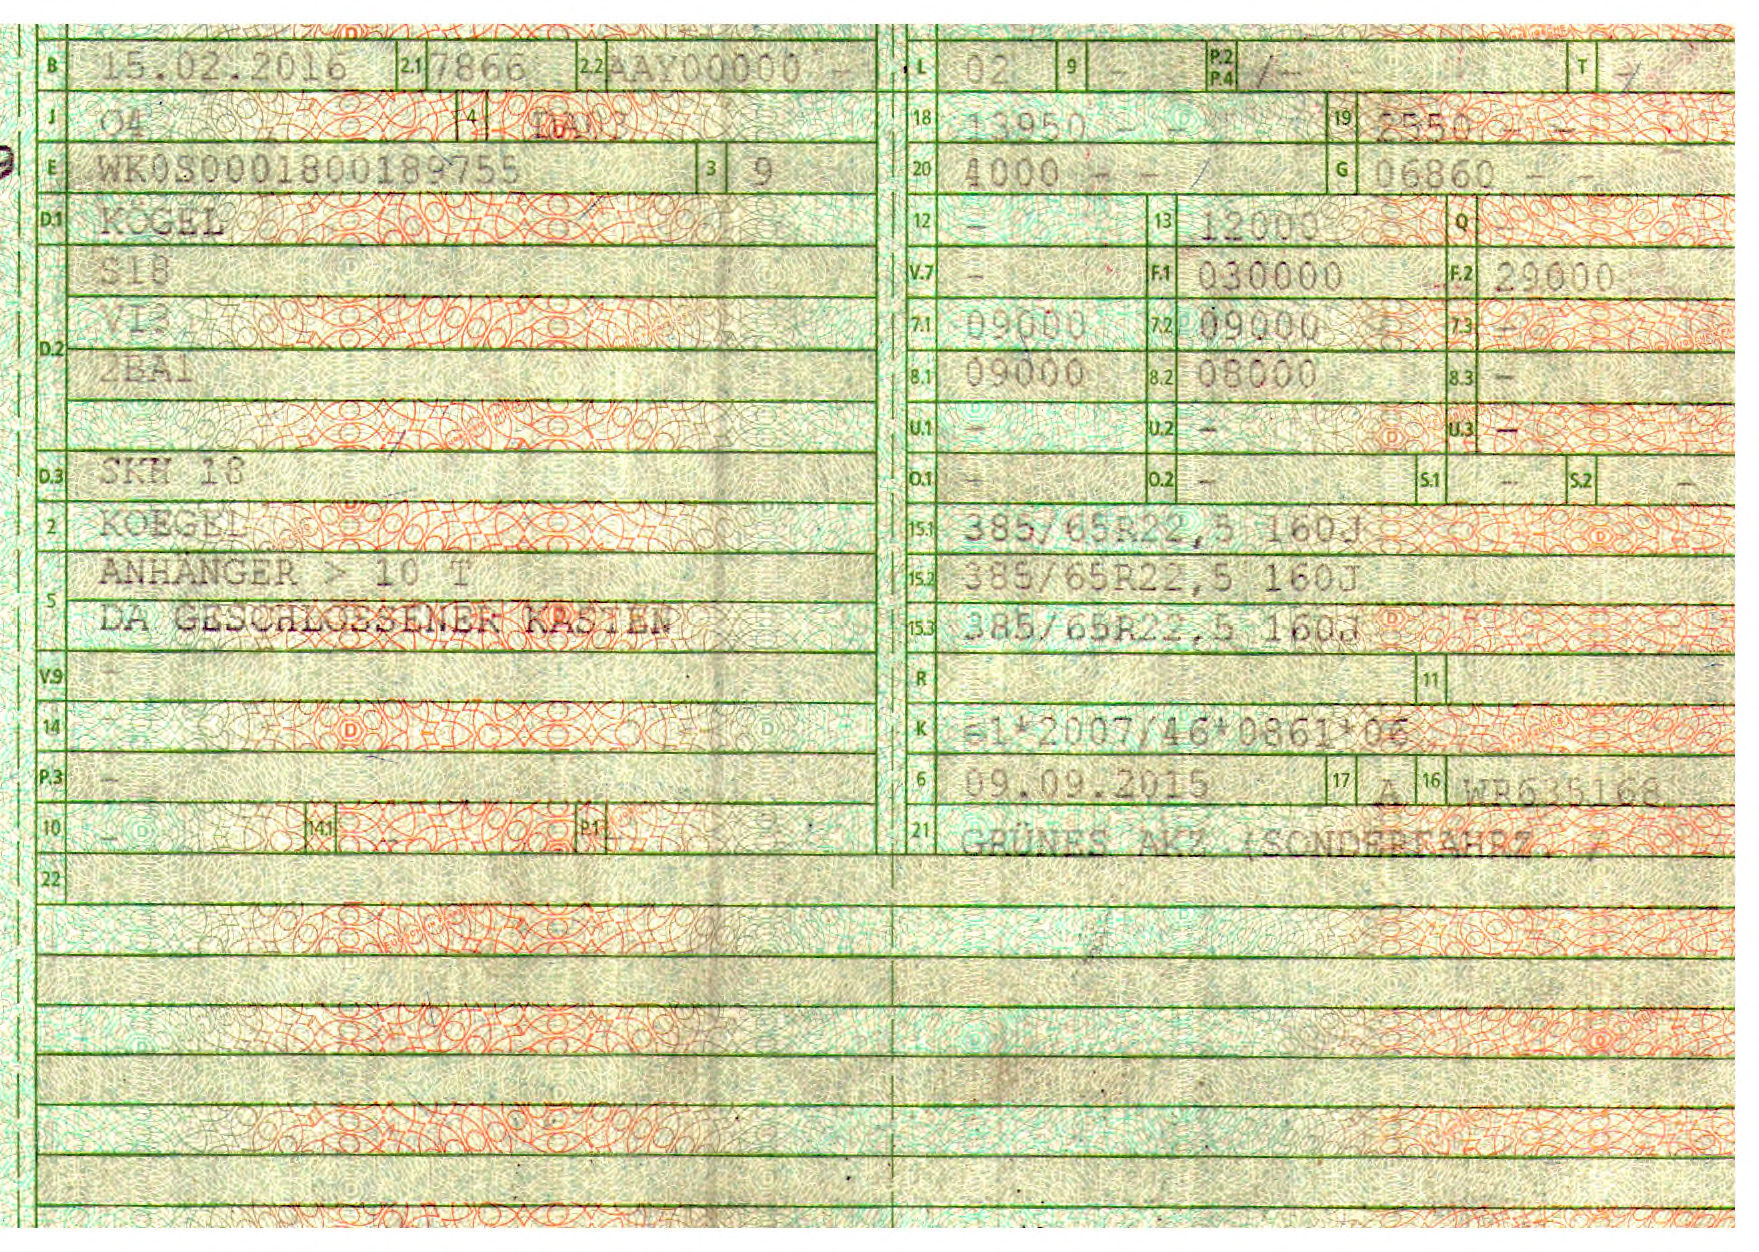 B 15.02.2016 2.1 7866 2.2 AAY00000 -
J O4 4
E WK0S0001800189755 3 9
D.1 KÖGEL
S18
D.2
2BA1
D.3 SKH 18
2 KOEGEL
ANHÄNGER > 10 T
5 DA GESCHLOSSENER KASTEN
V.9 -
14 -
P.3 -
10 - 14.1 - P.1 -
22
L 02 9 - P.2 P.4 /- T -
18 13950 - - 19 2550 - -
20 4000 - - G 06860 - -
12 - 13 12000 Q -
V.7 - F.1 030000 F.2 29000
7.1 09000 7.2 09000 7.3 -
8.1 09000 8.2 08000 8.3 -
U.1 - U.2 - U.3 -
O.1 - O.2 - S.1 - S.2 -
15.1 385/65R22,5 160J
15.2 385/65R22,5 160J
15.3 385/65R22,5 160J
R 11
K e1*2007/46*0861*06
6 09.09.2015 17 A 16 WR635168
21 GRÜNES AKZ (SONDERFAHRZ. /